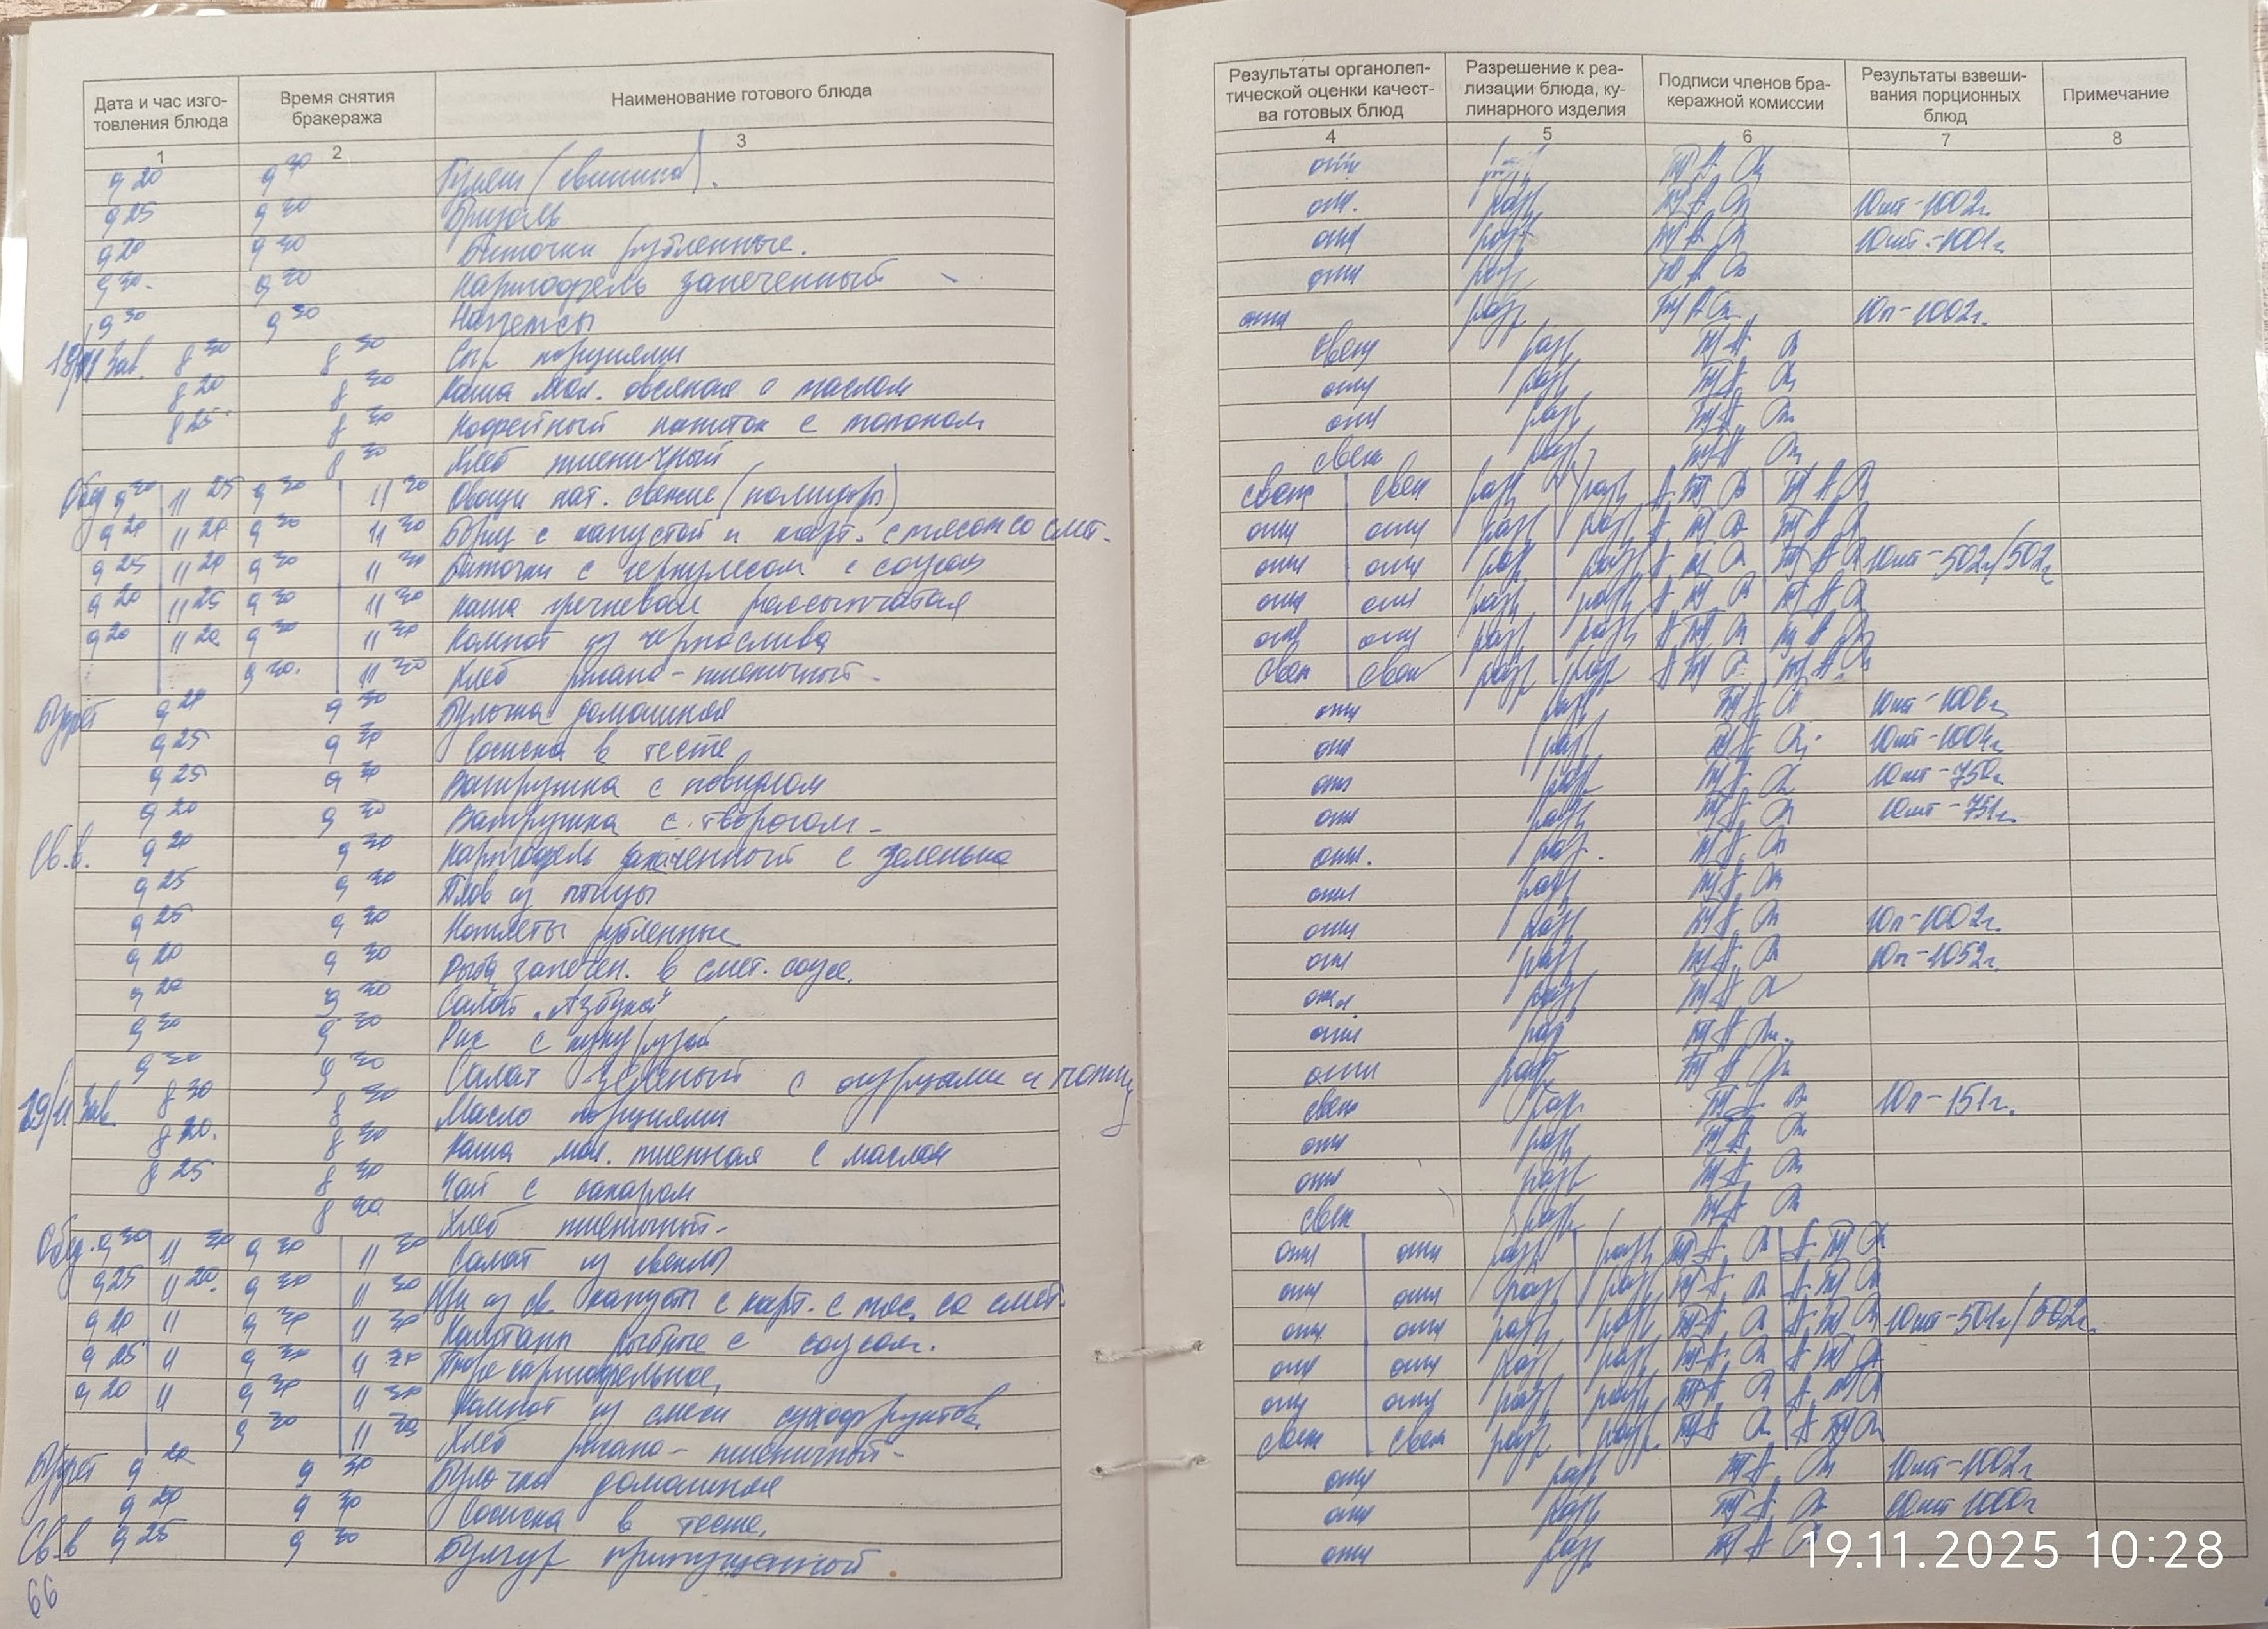 Дата и час изго-товления блюда | Время снятия бракеража | Наименование готового блюда | Результаты органолеп-тической оценки качест-ва готовых блюд | Разрешение к реа-лизации блюда, ку-линарного изделия | Подписи членов бра-керажной комиссии | Результаты взвеши-вания порционных блюд | Примечание
1 | 2 | 3 | 4 | 5 | 6 | 7 | 8
9 20 | 9 30 | Гуляш (свинина). | отл
9 25 | 9 30 | Бризоль | отл. | разр | 10шт-1002г.
9 20 | 9 30 | Биточки рубленные. | отл | разр | 10шт.-1001г
9 20. | 9 30 | Картофель запеченный | отл | разр
9 30 | 9 30 | Наггетсы | отл | разр | 10п-1002г.
18/11 Зав. 8 30 | 8 30 | Сыр порциями | свеж | разр
8 20 | 8 30 | Каша мол. овсяная с маслом | отл | разр
8 25 | 8 30 | Кофейный напиток с молоком | отл | разр
8 30 | Хлеб пшеничный | свеж | разр
Обед 9 30 | 11 25 | 9 30 | 11 30 | Овощи нат. свежие (помидоры) | свеж | свеж | разр | разр
9 20 | 11 20 | 9 30 | 11 30 | Борщ с капустой и карт. с мясом со смет. | отл | отл | разр | разр
9 25 | 11 20 | 9 30 | 11 30 | Биточки с геркулесом с соусом | отл | отл | разр | разр | 10шт-502г/502г
9 20 | 11 25 | 9 30 | 11 30 | Каша гречневая рассыпчатая | отл | отл | разр | разр
9 20 | 11 20 | 9 30 | 11 30 | Компот из чернослива | отл | отл | разр | разр
9 30. | 11 30 | Хлеб ржано-пшеничный. | свеж | свеж | разр | разр
Буфет 9 20 | 9 30 | Булочка домашняя | отл | разр | 10шт-1006г
9 25 | 9 30 | Сосиска в тесте | отл | разр | 10шт-1004г
9 25 | 9 30 | Ватрушка с повидлом | отл | разр | 10шт-750г
9 20 | 9 30 | Ватрушка с творогом | отл | разр | 10шт-751г.
Св.в. 9 20 | 9 30 | Картофель запеченный с зеленью | отл. | разр.
9 25 | 9 30 | Плов из птицы | отл | разр
9 25 | 9 30 | Котлеты рубленные | отл | разр | 10п-1002г.
9 20 | 9 30 | Рыба запечен. в смет. соусе. | отл | разр | 10п-1052г.
9 20 | 9 30 | Салат "Азбука" | отл. | разр
9 30 | 9 30 | Рис с кукурузой | отл | разр
9 30 | 9 30 | Салат зеленый с огурцами и | отл | разр
19/11 Зав. 8 30 | 8 30 | Масло порциями | свеж | разр | 10п-151г.
8 20. | 8 30 | Каша мол. пшенная с маслом | отл | разр
8 25 | 8 30 | Чай с сахаром | отл | разр
8 30 | Хлеб пшеничный | свеж | разр
Обед. 9 30 | 11 20 | 9 30 | 11 30 | Салат из свеклы | отл | отл | разр | разр
9 25 | 11 20. | 9 30 | 11 30 | Щи из св. капусты с карт. с мяс. со смет. | отл | отл | разр | разр
9 20 | 11 | 9 30 | 11 30 | рыбные с соусом. | отл | отл | разр | разр | 10шт-501г/502г
9 25 | 11 | 9 30 | 11 30 | Пюре картофельное | отл | отл | разр | разр
9 20 | 11 | 9 30 | 11 30 | Компот из смеси сухофруктов | отл | отл | разр | разр
9 30 | 11 30 | Хлеб ржано-пшеничный | свеж | свеж | разр | разр
Буфет 9 20 | 9 30 | Булочка домашняя | отл | разр | 10шт-1002г
9 20 | 9 30 | Сосиска в тесте. | отл | разр | 10шт 1000г
Св.в 9 25 | 9 30 | Булгур припущенный. | отл | разр
66
19.11.2025 10:28